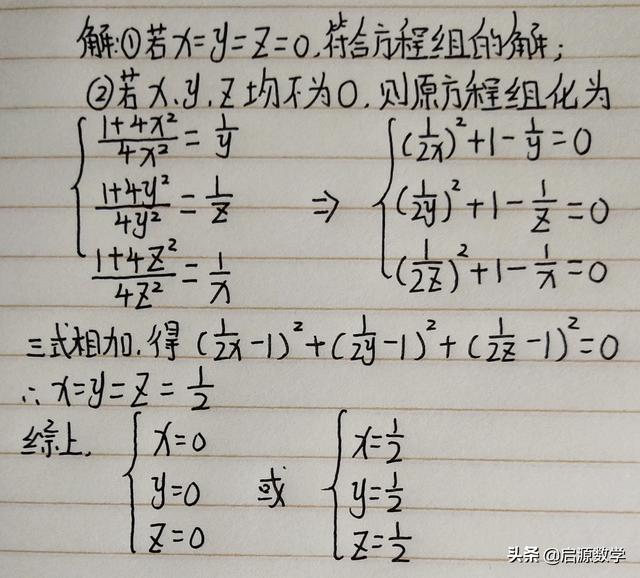 解:①若x=y=z=0,符合方程组的解;
②若x、y、z均不为0,则原方程组化为
{ (1+4x²)/(4x²) = 1/y
(1+4y²)/(4y²) = 1/z
(1+4z²)/(4z²) = 1/x
⇒
{ (1/2x)²+1-1/y=0
(1/2y)²+1-1/z=0
(1/2z)²+1-1/x=0
三式相加,得(1/2x-1)²+(1/2y-1)²+(1/2z-1)²=0
∴x=y=z=1/2
综上,
{ x=0
y=0
z=0
或
{ x=1/2
y=1/2
z=1/2
头条 @启源数学